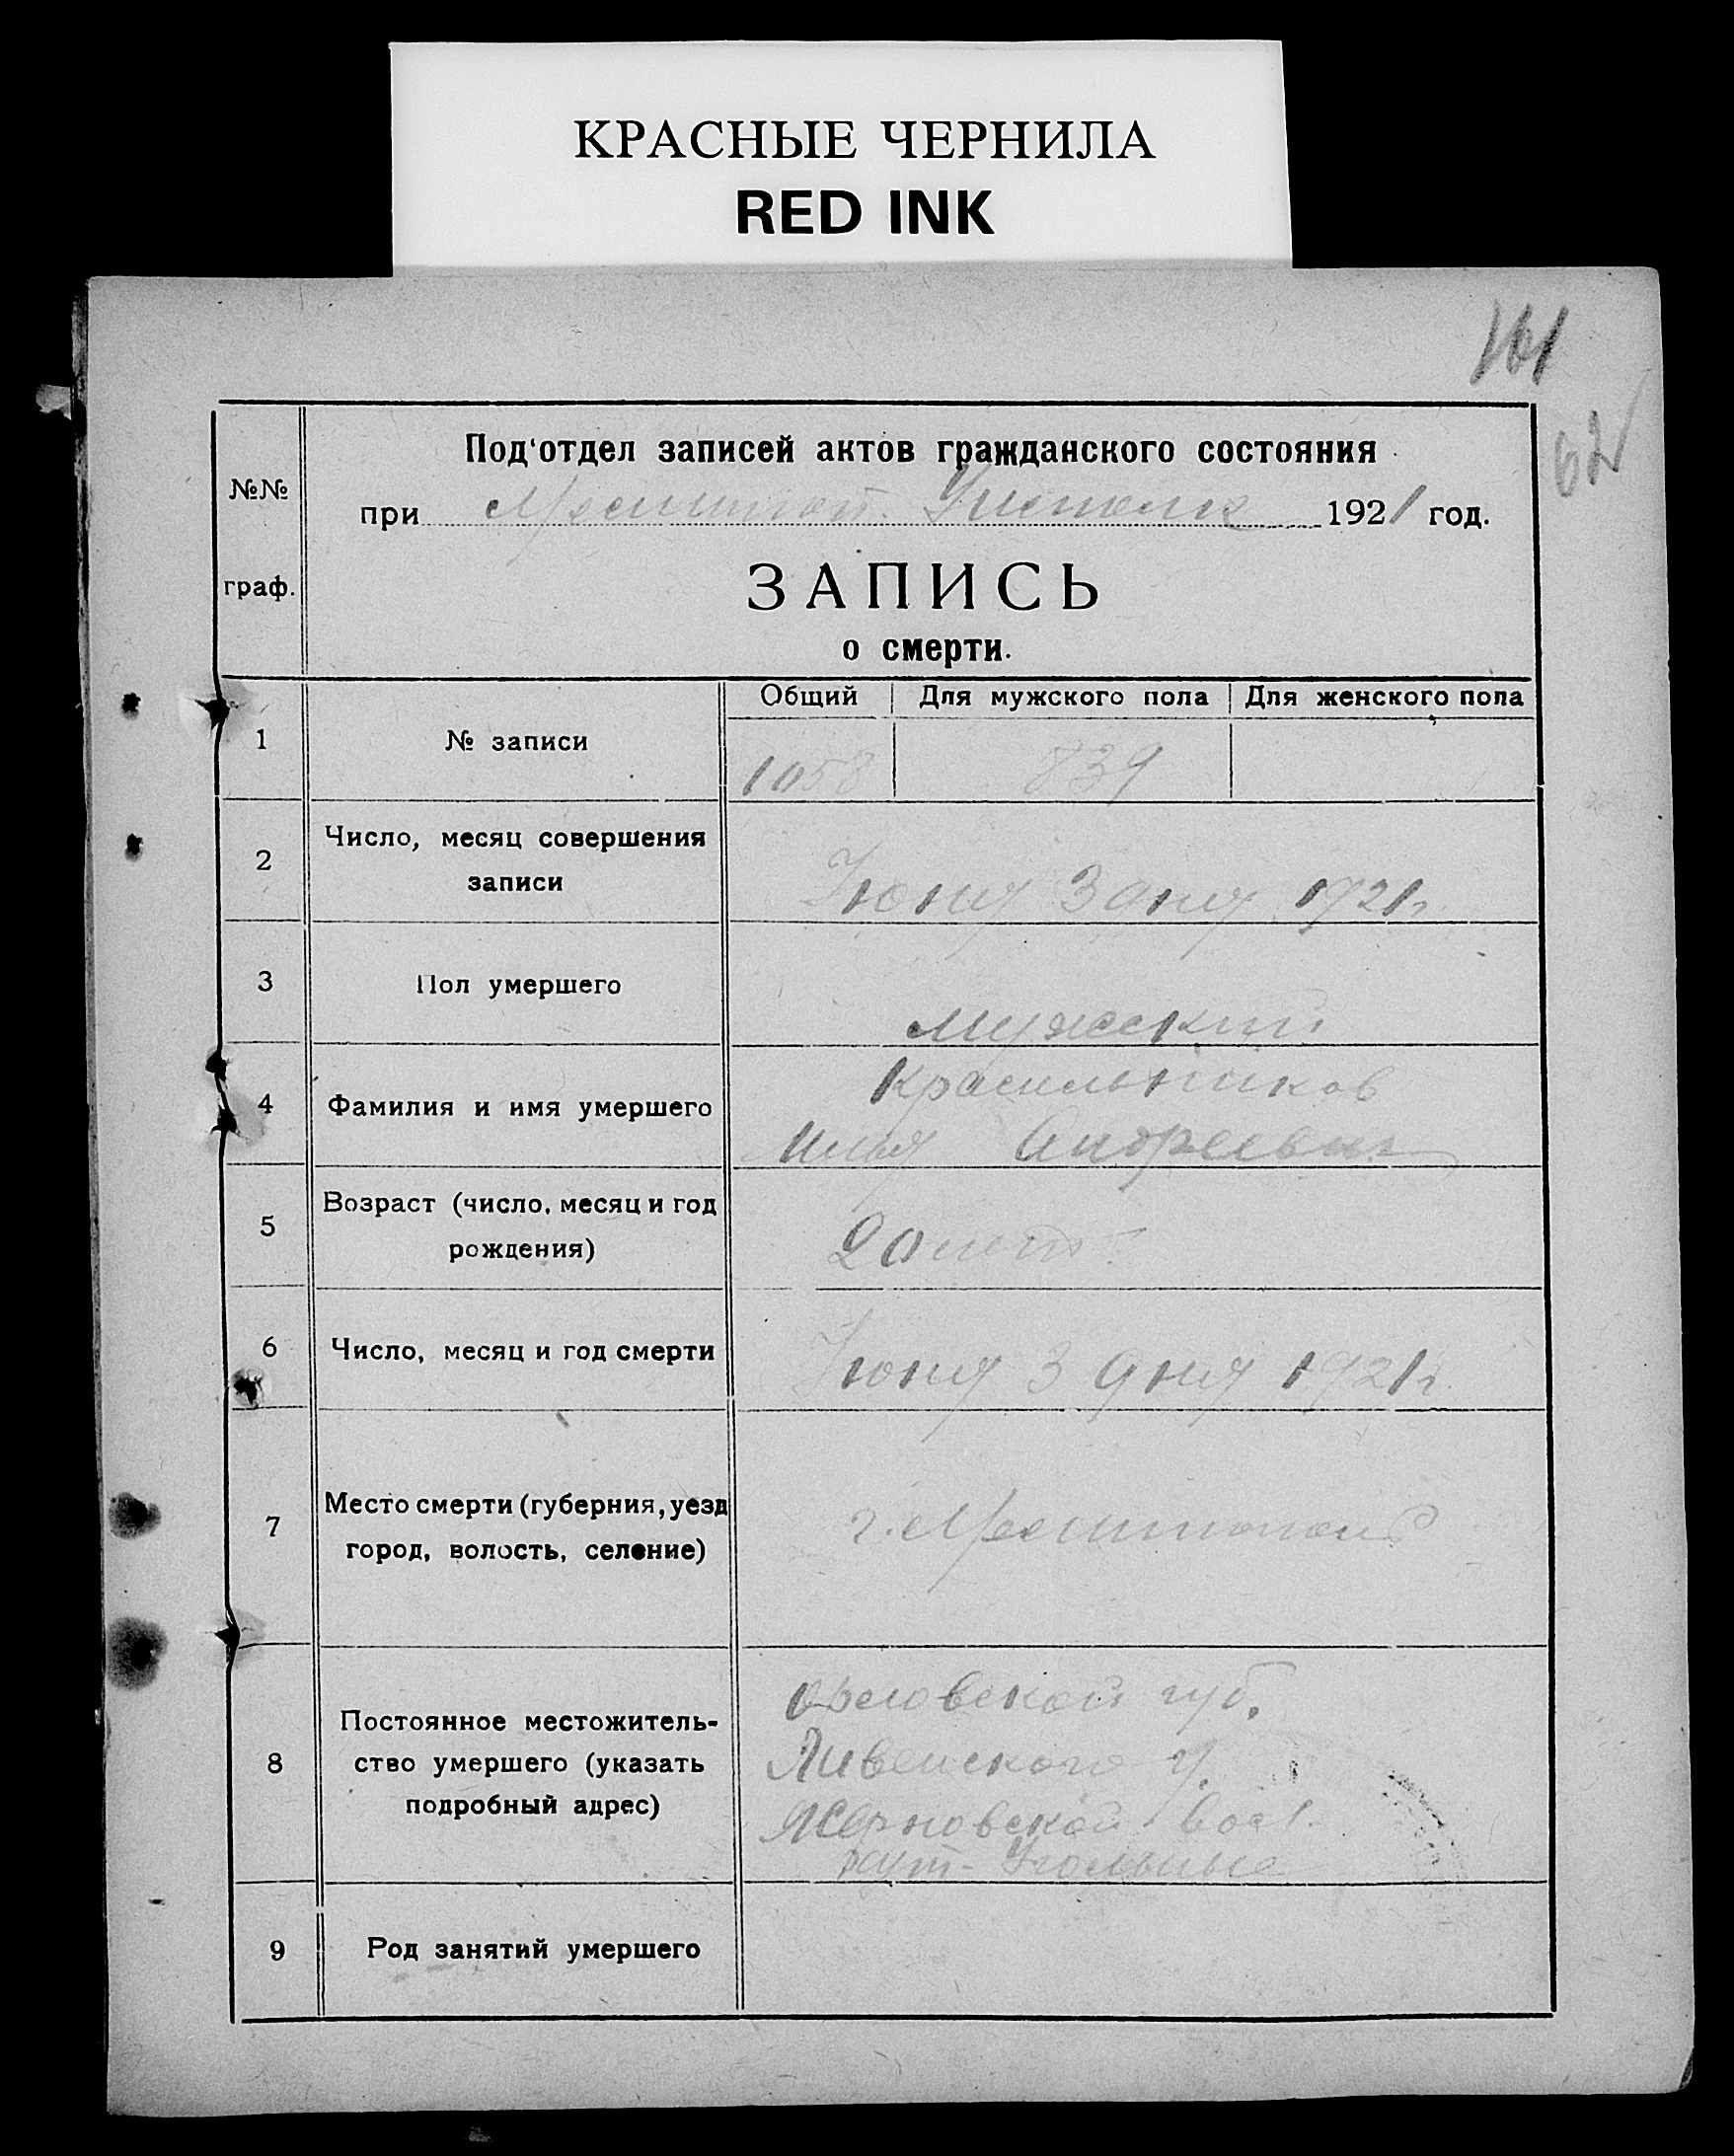 КРАСНЫЕ ЧЕРНИЛА
RED INK
161
62
Под'отдел записей актов гражданского состояния
№№
при Мелитоп. 1921 год.
граф.
ЗАПИСЬ
о смерти.
Общий Для мужского пола Для женского пола
1 № записи 1058 839
2 Число, месяц совершения
записи
Июня 3 дня 1921 г.
3 Пол умершего
мужской
Красильников
4 Фамилия и имя умершего
Илья Андреевич
Возраст (число, месяц и год
5 20 лет
рождения)
6 Число, месяц и год смерти Июня 3 дня 1921 г.
Место смерти (губерния, уезд
7 г. Мелитополь
город, волость, селение)
Орловской губ.
Постоянное местожитель-
Ливенского у.
8 ство умершего (указать
подробный адрес)
Жерновской вол.
хут.
9 Род занятий умершего